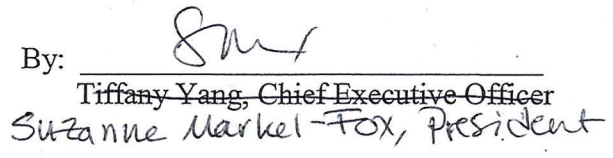 By:
Tiffany Yang, Chief Executive Officer
Suzanne Markel-Fox, President